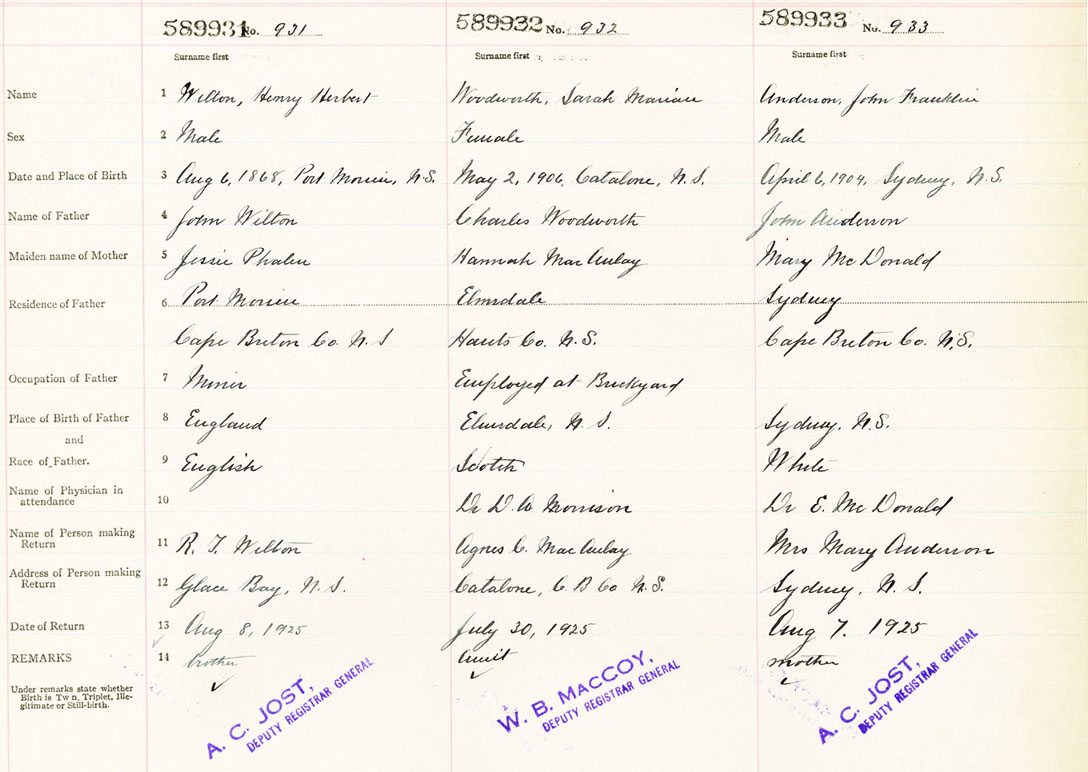 589931 No. 931 589932 No. 932 589933 No. 933
Surname first Surname first Surname first
Name 1 Wilton, Henry Herbert Woodworth, Sarah Marian Anderson, John Franklin
Sex 2 Male Female Male
Date and Place of Birth 3 Aug 6, 1868, Port Morien, N.S. May 2, 1906, Catalone, N.S. April 6, 1904, Sydney, N.S.
Name of Father 4 John Wilton Charles Woodworth John Anderson
Maiden name of Mother 5 Jessie Phalen Hannah MacAulay Mary McDonald
Residence of Father 6 Port Morien Elmsdale Sydney
Cape Breton Co. N.S Hants Co. N.S. Cape Breton Co. N.S.
Occupation of Father 7 Miner Employed at Brickyard
Place of Birth of Father 8 England Elmsdale, N.S. Sydney, N.S.
and
Race of Father. 9 English Scotch White
Name of Physician in
attendance 10 Dr D.A Morrison Dr E. McDonald
Name of Person making
Return 11 R. T. Wilton Agnes C. MacAulay Mrs Mary Anderson
Address of Person making
Return 12 Glace Bay, N.S. Catalone, C.B Co N.S. Sydney, N.S.
Date of Return 13 Aug 8, 1925 July 30, 1925 Aug 7. 1925
REMARKS 14 brother aunt mother
Under remarks state whether
Birth is Tw n, Triplet, Ille-
gitimate or Still-birth.
A. C. JOST,
DEPUTY REGISTRAR GENERAL
W. B. MACCOY,
DEPUTY REGISTRAR GENERAL
A. C. JOST,
DEPUTY REGISTRAR GENERAL